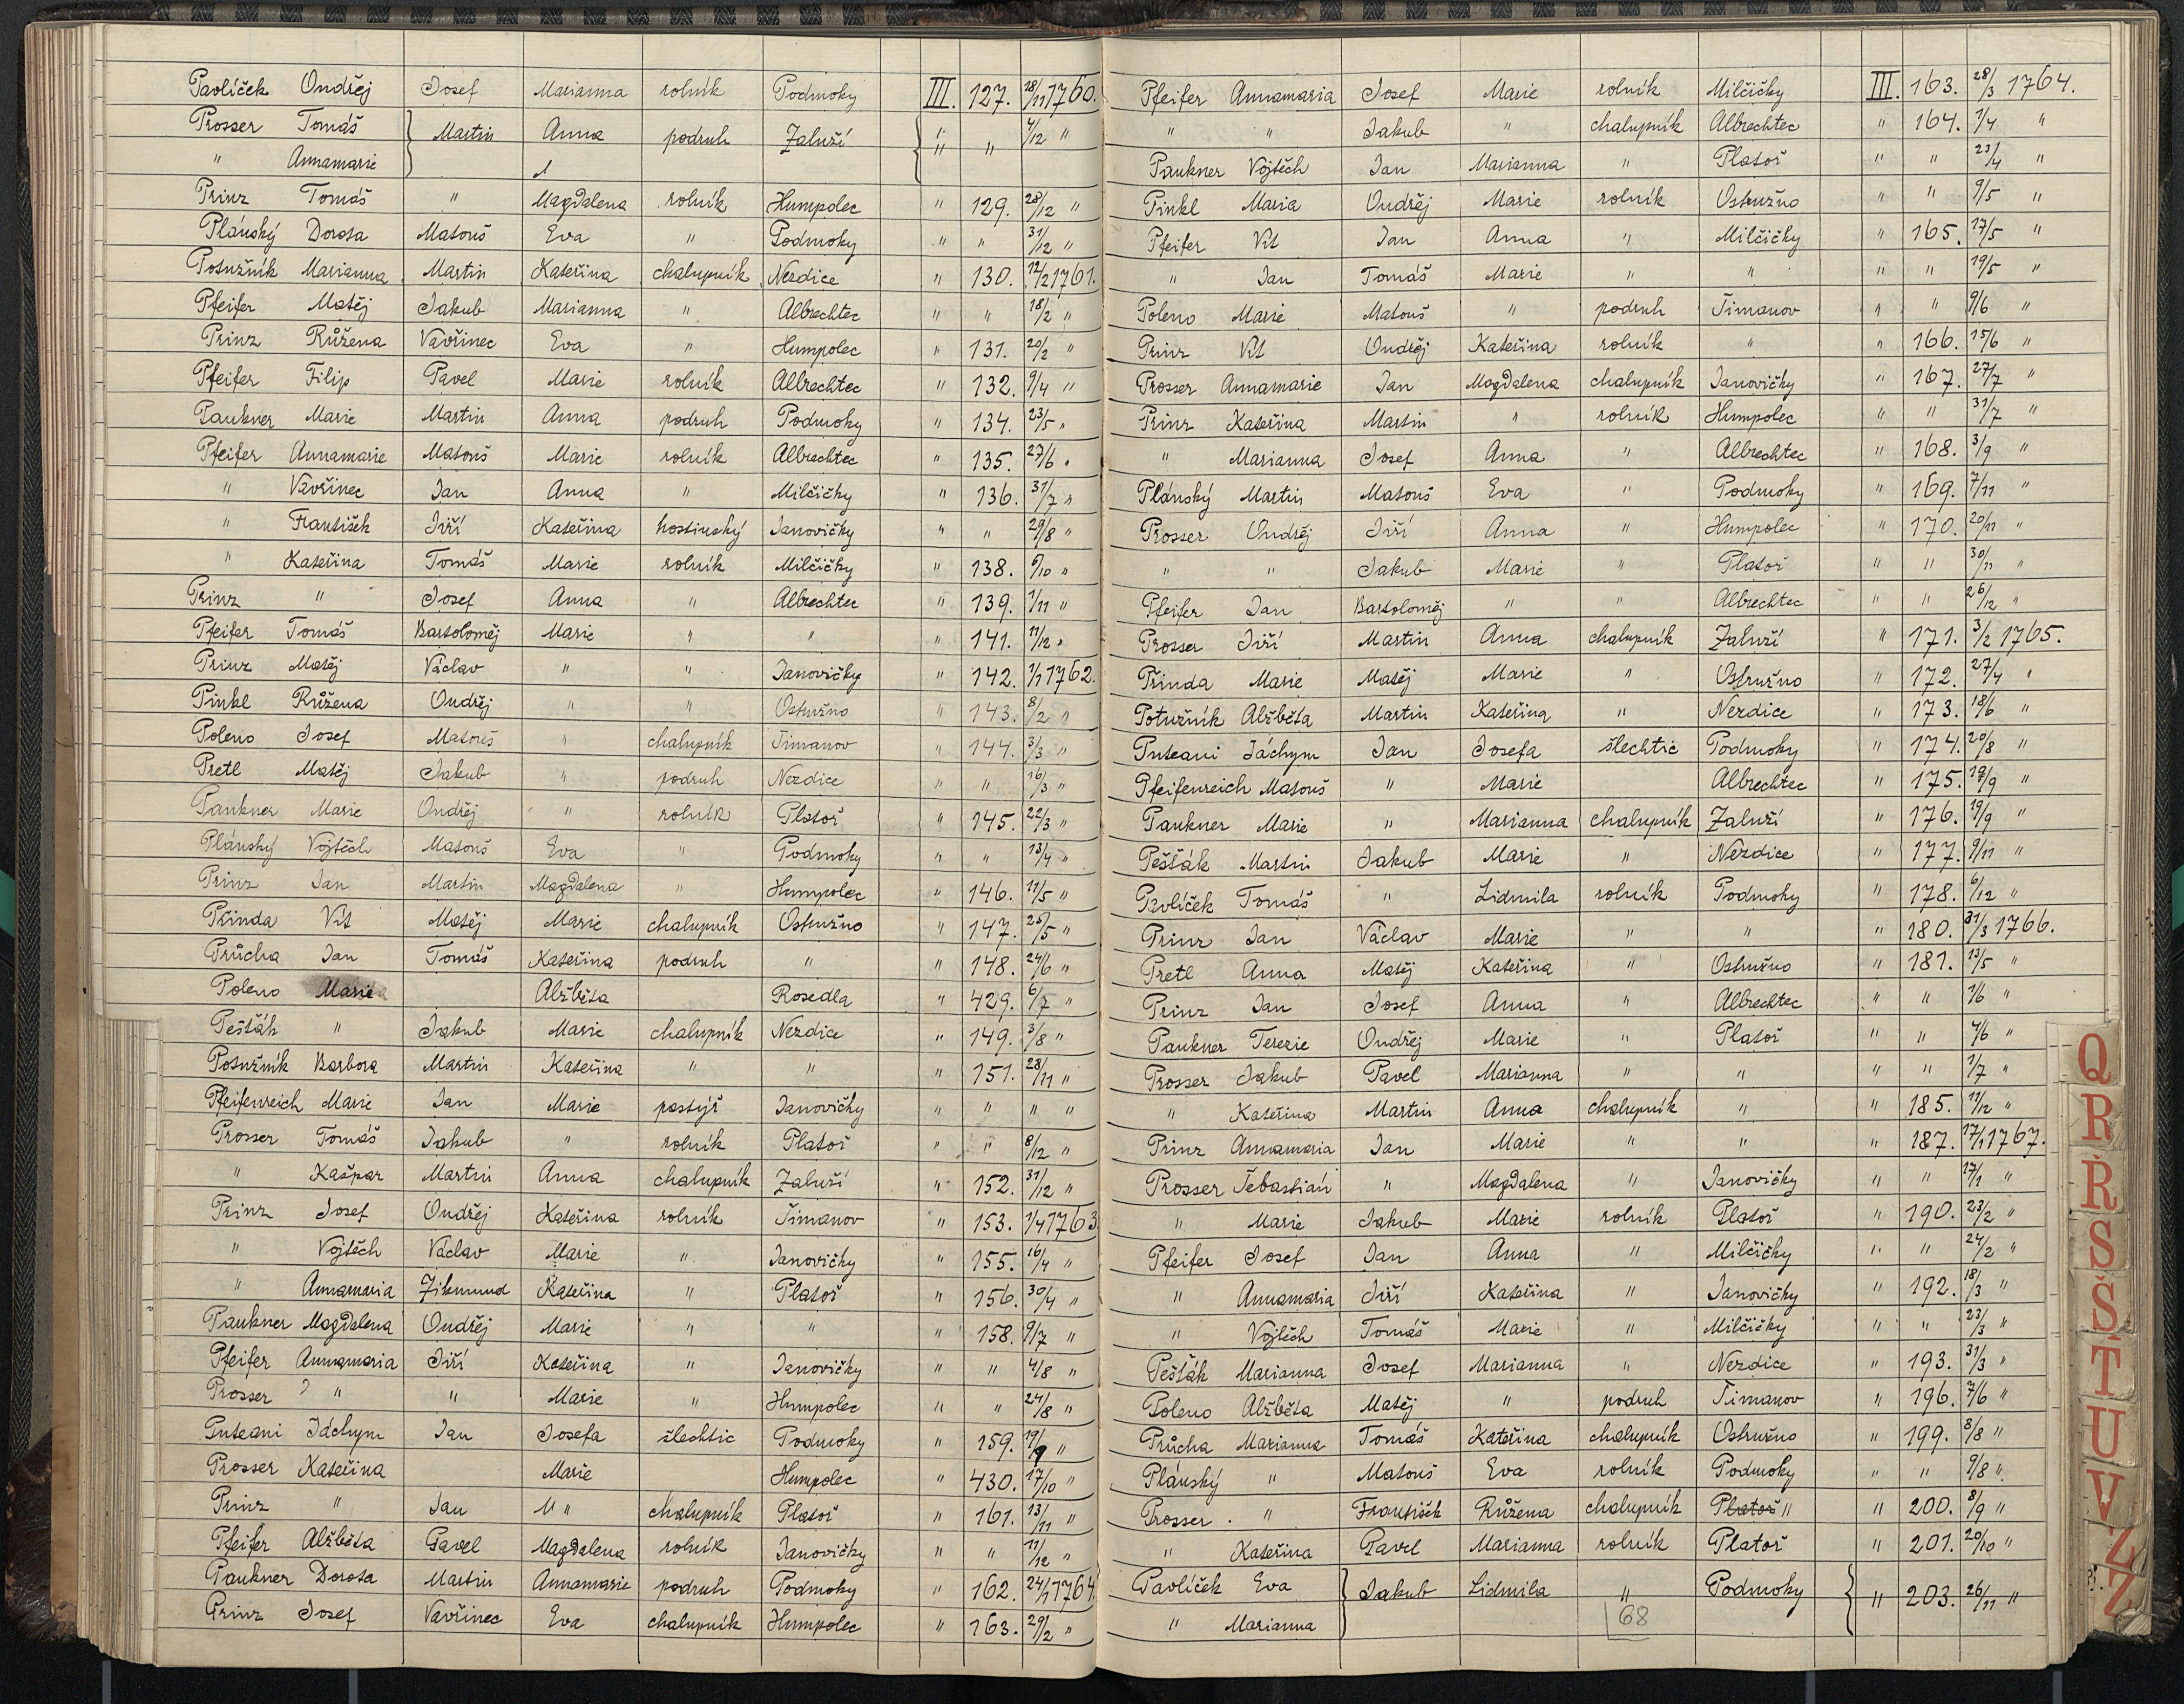 Pavlíček Ondřej Josef Marianna rolník Podmoky III. 127. 28/11 1760.
Prosser Tomáš Martin Anna podruh Zaluží " " 4/12 "
" Annamarie "
Prinz Tomáš " Magdalena rolník Humpolec " 129. 28/12 "
Plánský Dorota Matouš Eva " Podmoky " " 31/12 "
Potužník Marianna Martin Kateřina chalupník Nezdice " 130. 12/2 1761.
Pfeifer Matěj Jakub Marianna " Albrechtec " " 18/2 "
Prinz Růžena Vavřinec Eva " Humpolec " 131. 20/2 "
Pfeifer Filip Pavel Marie rolník Albrechtec " 132. 9/4 "
Paukner Marie Martin Anna podruh Podmoky " 134. 23/5 "
Pfeifer Annamarie Matouš Marie rolník Albrechtec " 135. 27/6 "
" Vavřinec Jan Anna " Milčičky " 136. 31/7 "
" František Jiří Kateřina hostinský Janovičky " " 29/8 "
" Kateřina Tomáš Marie rolník Milčičky " 138. /10 "
Prinz " Josef Anna " Albrechtec " 139. 1/11 "
Pfeifer Tomáš Bartoloměj Marie " " " 141. 11/12 "
Prinz Matěj Václav " " Janovičky " 142. 1/1 1762.
Pinkl Růžena Ondřej " " Ostružno " 143. 8/2 "
Poleno Josef Matouš " chalupník Šimanov " 144. 3/3 "
Pretl Matěj Jakub " podruh Nezdice " " 16/3 "
Paukner Marie Ondřej " rolník Platoř " 145. 22/3 "
Plánský Vojtěch Matouš Eva " Podmoky " " 13/4 "
Prinz Jan Martin Magdalena " Humpolec " 146. 11/5 "
Přinda Vít Matěj Marie chalupník Ostružno " 147. 25/5 "
Průcha Jan Tomáš Kateřina podruh " " 148. 24/6 "
Poleno Marie Alžběta Rosedla " 429. 6/7 "
Pešťák " Jakub Marie chalupník Nezdice " 149. 3/8 "
Potužník Barbora Martin Kateřina " " " 151. 28/11 "
Pfeifenreich Marie Jan Marie pastýř Janovičky " " " "
Prosser Tomáš Jakub " rolník Platoř " " 8/12 "
" Kašpar Martin Anna chalupník Zaluží " 152. 31/12 "
Prinz Josef Ondřej Kateřina rolník Šimanov " 153. 1/4 1763
" Vojtěch Václav Marie " Janovičky " 155. 16/4 "
" Annamaria Zikmund Kateřina " Platoř " 156. 30/4 "
Paukner Magdalena Ondřej Marie " " " 158. 9/7 "
Pfeifer Annamaria Jiří Kateřina " Janovičky " " 4/8 "
Prosser ? " " Marie " Humpolec " " 24/8 "
Puteani Jáchym Jan Josefa šlechtic Podmoky " 159. 19/9 "
Prosser Kateřina Marie Humpolec " 430. 17/10 "
Prinz " Jan " chalupník Platoř " 161. 13/11 "
Pfeifer Alžběta Pavel Magdalena rolník Janovičky " " 11/12 "
Paukner Dorota Martin Annamarie podruh Podmoky " 162. 24/1 1764.
Prinz Josef Vavřinec Eva chalupník Humpolec " 163. 29/2 "
Pfeifer Annamaria Josef Marie rolník Milčičky III. 163. 28/3 1764.
" " Jakub " chalupník Albrechtec " 164. 1/4 "
Paukner Vojtěch Jan Marianna " Platoř " " 23/4 "
Pinkl Maria Ondřej Marie rolník Ostružno " " 9/5 "
Pfeifer Vít Jan Anna " Milčičky " 165. 17/5 "
" Jan Tomáš Marie " " " " 19/5 "
Poleno Marie Matouš " podruh Šimanov " " 9/6 "
Prinz Vít Ondřej Kateřina rolník " " 166. 15/6 "
Prosser Annamarie Jan Magdalena chalupník Janovičky " 167. 27/7 "
Prinz Kateřina Martin " rolník Humpolec " " 31/7 "
" Marianna Josef Anna " Albrechtec " 168. 3/9 "
Plánský Martin Matouš Eva " Podmoky " 169. 7/11 "
Prosser Ondřej Jiří Anna " Humpolec " 170. 20/11 "
" " Jakub Marie " Platoř " " 30/11 "
Pfeifer Jan Bartoloměj " " Albrechtec " " 26/12 "
Prosser Jiří Martin Anna chalupník Zaluží " 171. 3/2 1765.
Přinda Marie Matěj Marie " Ostružno " 172. 27/4 "
Potužník Alžběta Martin Kateřina " Nezdice " 173. 18/6 "
Puteani Jáchym Jan Josefa šlechtic Podmoky " 174. 20/8 "
Pfeifenreich Matouš " Marie Albrechtec " 175. 19/9 "
Paukner Marie " Marianna chalupník Zaluží " 176. 19/9 "
Pešťák Martin Jakub Marie " Nezdice " 177. 9/11 "
Pavlíček Tomáš " Lidmila rolník Podmoky " 178. 6/12 "
Prinz Jan Václav Marie " " " 180. 31/3 1766.
Pretl Anna Matěj Kateřina " Ostružno " 181. 13/5 "
Prinz Jan Josef Anna " Albrechtec " " 1/6 "
Paukner Terezie Ondřej Marie " Platoř " " 4/6 "
Prosser Jakub Pavel Marianna " " " " 1/7 "
" Kateřina Martin Anna chalupník " " 185. 11/12 "
Prinz Annamaria Jan Marie " " " 187. 17/1 1767.
Prosser Šebastián " Magdalena " Janovičky " " 17/1 "
" Marie Jakub Marie rolník Platoř " 190. 23/2 "
Pfeifer Josef Jan Anna " Milčičky " " 24/2 "
" Annamaria Jiří Kateřina " Janovičky " 192. 18/3 "
" Vojtěch Tomáš Marie " Milčičky " " 23/3 "
Pešťák Marianna Josef Marianna " Nezdice " 193. 31/3 "
Poleno Alžběta Matěj " podruh Šimanov " 196. 7/6 "
Průcha Marianna Tomáš Kateřina chalupník Ostružno " 199. 8/8 "
Plánský " Matouš Eva rolník Podmoky " " 9/8 "
Prosser " František Růžena chalupník Platoř " " 200. 8/9 "
" Kateřina Pavel Marianna rolník Platoř " 201. 20/10 "
Pavlíček Eva Jakub Lidmila " Podmoky " 203. 26/11 "
" Marianna
68
Q
R
Ř
S
Š
T
U
V
Z
Ž